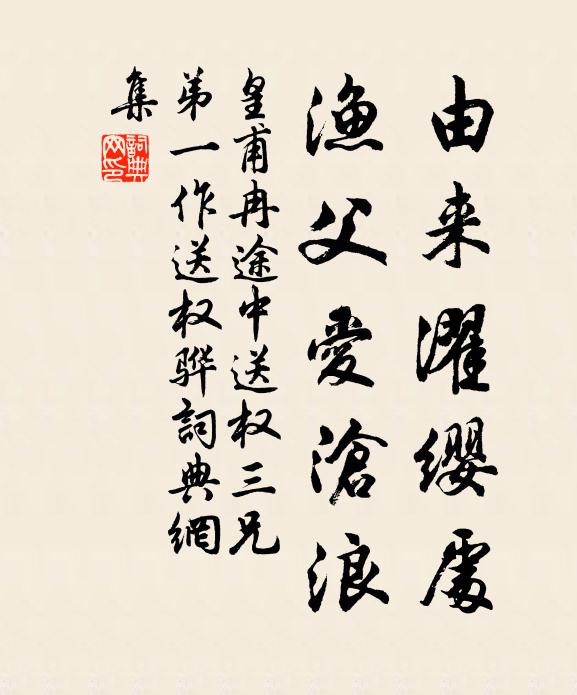 由来濯缨處
渔父愛滄浪
皇甫冉途中送权三兄
弟一作送权骅詞典網
集
詞典網印